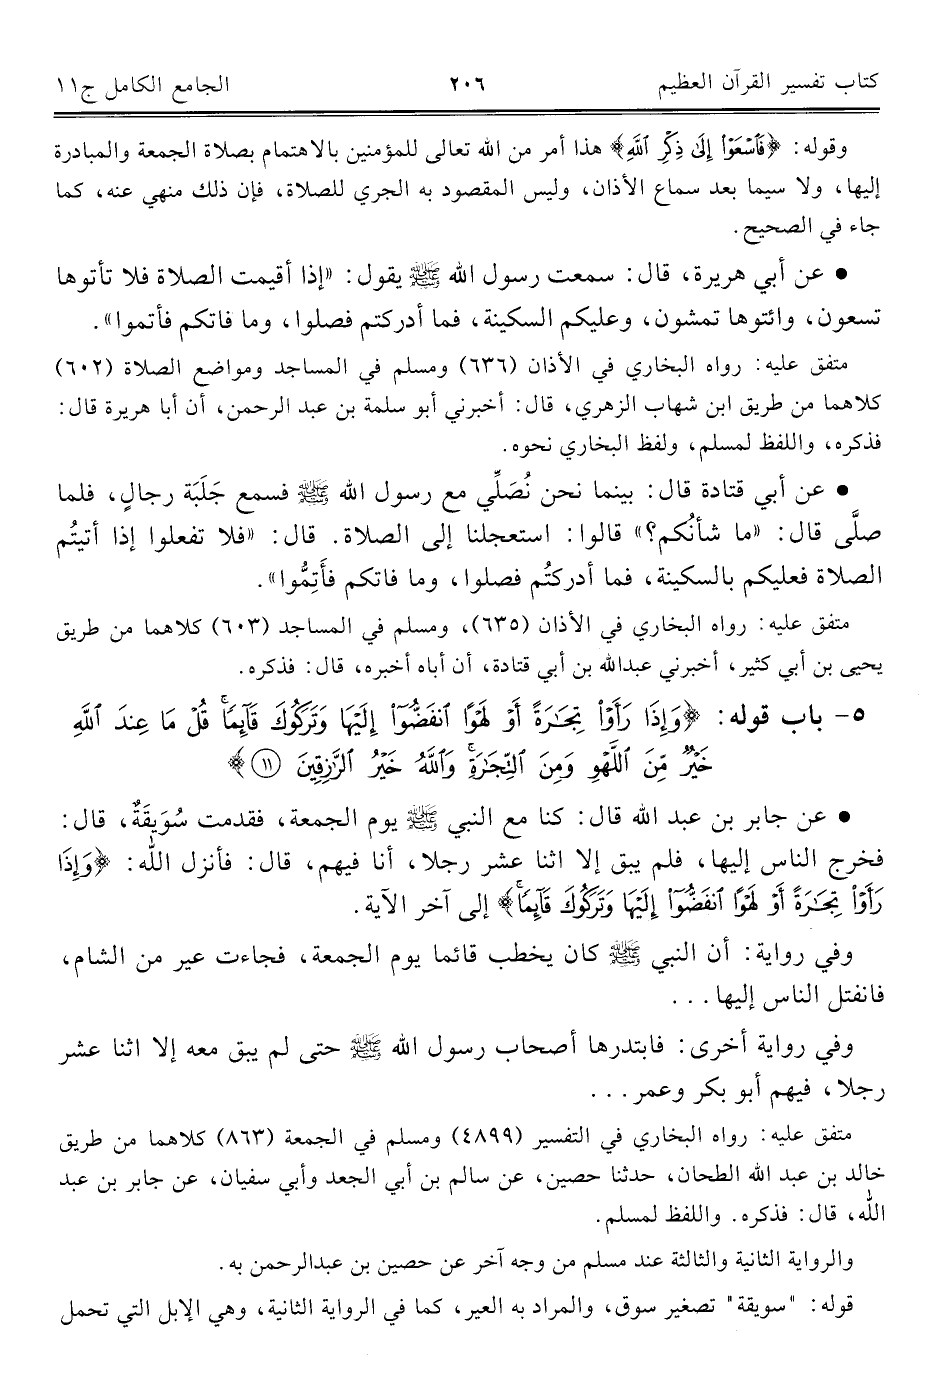 كتاب تفسير القرآن العظيم ٢٠٦ الجامع الكامل ج١١
وقوله: ﴿فَٱسْعَوْا۟ إِلَىٰ ذِكْرِ ٱللَّهِ﴾ هذا أمر من الله تعالى للمؤمنين بالاهتمام بصلاة الجمعة والمبادرة
إليها، ولا سيما بعد سماع الأذان، وليس المقصود به الجري للصلاة، فإن ذلك منهي عنه، كما
جاء في الصحيح.
• عن أبي هريرة، قال: سمعت رسول الله ﷺ يقول: «إذا أقيمت الصلاة فلا تأتوها
تسعون، وائتوها تمشون، وعليكم السكينة، فما أدركتم فصلوا، وما فاتكم فأتموا».
متفق عليه: رواه البخاري في الأذان (٦٣٦) ومسلم في المساجد ومواضع الصلاة (٦٠٢)
كلاهما من طريق ابن شهاب الزهري، قال: أخبرني أبو سلمة بن عبد الرحمن، أن أبا هريرة قال:
فذكره، واللفظ لمسلم، ولفظ البخاري نحوه.
• عن أبي قتادة قال: بينما نحن نُصَلِّي مع رسول الله ﷺ فسمع جَلَبَة رجالٍ، فلما
صلَّى قال: «ما شأنُكم؟» قالوا: استعجلنا إلى الصلاة. قال: «فلا تفعلوا إذا أتيتُم
الصلاة فعليكم بالسكينة، فما أدركتُم فصلوا، وما فاتكم فأَتِمُّوا».
متفق عليه: رواه البخاري في الأذان (٦٣٥)، ومسلم في المساجد (٦٠٣) كلاهما من طريق
يحيى بن أبي كثير، أخبرني عبدالله بن أبي قتادة، أن أباه أخبره، قال: فذكره.
٥- باب قوله: ﴿وَإِذَا رَأَوْا۟ تِجَٰرَةً أَوْ لَهْوًا ٱنفَضُّوٓا۟ إِلَيْهَا وَتَرَكُوكَ قَآئِمًا ۚ قُلْ مَا عِندَ ٱللَّهِ
خَيْرٌ مِّنَ ٱللَّهْوِ وَمِنَ ٱلتِّجَٰرَةِ ۚ وَٱللَّهُ خَيْرُ ٱلرَّٰزِقِينَ ⑪﴾
• عن جابر بن عبد الله قال: كنا مع النبي ﷺ يوم الجمعة، فقدمت سُوَيقَةٌ، قال:
فخرج الناس إليها، فلم يبق إلا اثنا عشر رجلا، أنا فيهم، قال: فأنزل الله: ﴿وَإِذَا
رَأَوْا۟ تِجَٰرَةً أَوْ لَهْوًا ٱنفَضُّوٓا۟ إِلَيْهَا وَتَرَكُوكَ قَآئِمًا ۚ﴾ إلى آخر الآية.
وفي رواية: أن النبي ﷺ كان يخطب قائما يوم الجمعة، فجاءت عير من الشام،
فانفتل الناس إليها...
وفي رواية أخرى: فابتدرها أصحاب رسول الله ﷺ حتى لم يبق معه إلا اثنا عشر
رجلا، فيهم أبو بكر وعمر...
متفق عليه: رواه البخاري في التفسير (٤٨٩٩) ومسلم في الجمعة (٨٦٣) كلاهما من طريق
خالد بن عبد الله الطحان، حدثنا حصين، عن سالم بن أبي الجعد وأبي سفيان، عن جابر بن عبد
الله، قال: فذكره. واللفظ لمسلم.
والرواية الثانية والثالثة عند مسلم من وجه آخر عن حصين بن عبدالرحمن به.
قوله: "سويقة" تصغير سوق، والمراد به العير، كما في الرواية الثانية، وهي الإبل التي تحمل